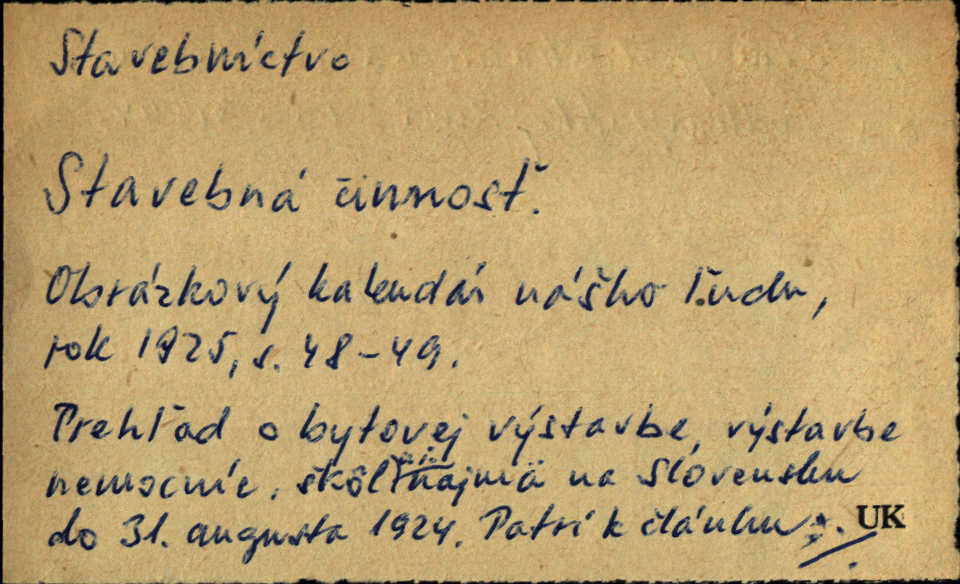 Stavebníctvo
Stavebná činnosť.
Obrázkový kalendár nášho ľudu,
rok 1925, s. 48-49.
Prehľad o bytovej výstavbe, výstavbe
nemocníc, škôl najmä na Slovensku
do 31. augusta 1924. Patrí k článku UK